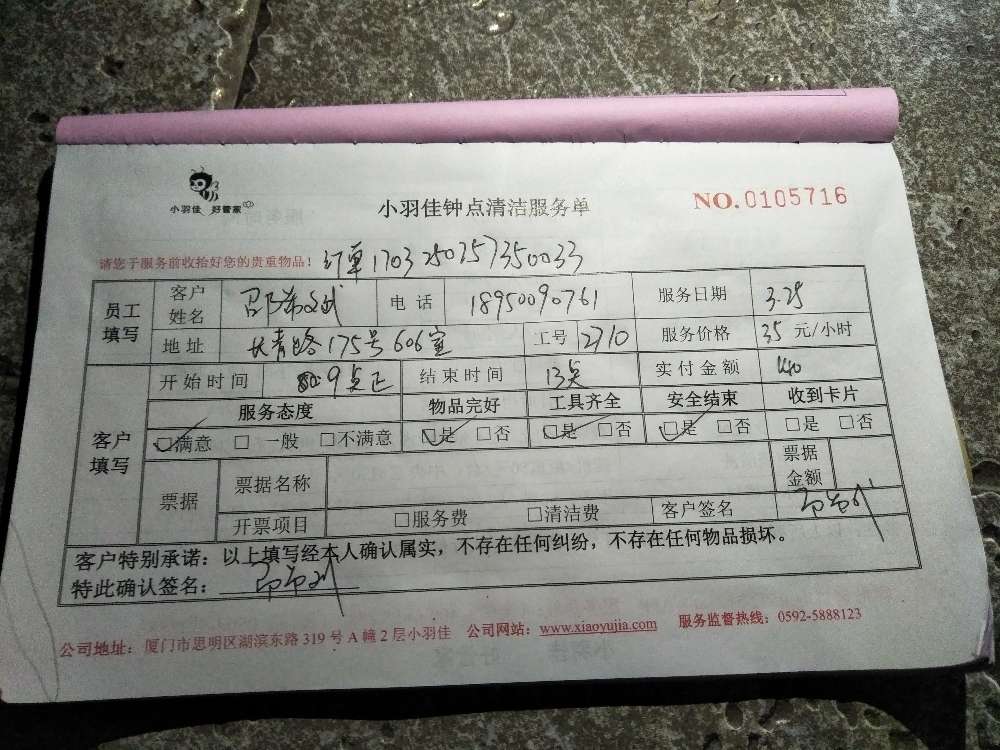 小羽佳 好管家
小羽佳钟点清洁服务单
NO.0105716
请您于服务前收拾好您的贵重物品！ 订单1703250357350033
员工填写 客户姓名 电话 18950090761 服务日期 3.25
地址 长青路175号606室 工号 2710 服务价格 35 元/小时
客户填写 开始时间 9点正 结束时间 13点 实付金额 140
服务态度 物品完好 工具齐全 安全结束 收到卡片
☑满意 □ 一般 □不满意 ☑是 □否 ☑是 □否 ☑是 □否 □是 □否
票据 票据名称 票据金额
开票项目 □服务费 □清洁费 客户签名
客户特别承诺：以上填写经本人确认属实，不存在任何纠纷，不存在任何物品损坏。
特此确认签名：
公司地址：厦门市思明区湖滨东路 319 号 A 幢 2 层小羽佳 公司网站：www.xiaoyujia.com 服务监督热线：0592-5888123